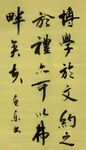 博學於文約之
於禮亦可以弗
畔矣夫